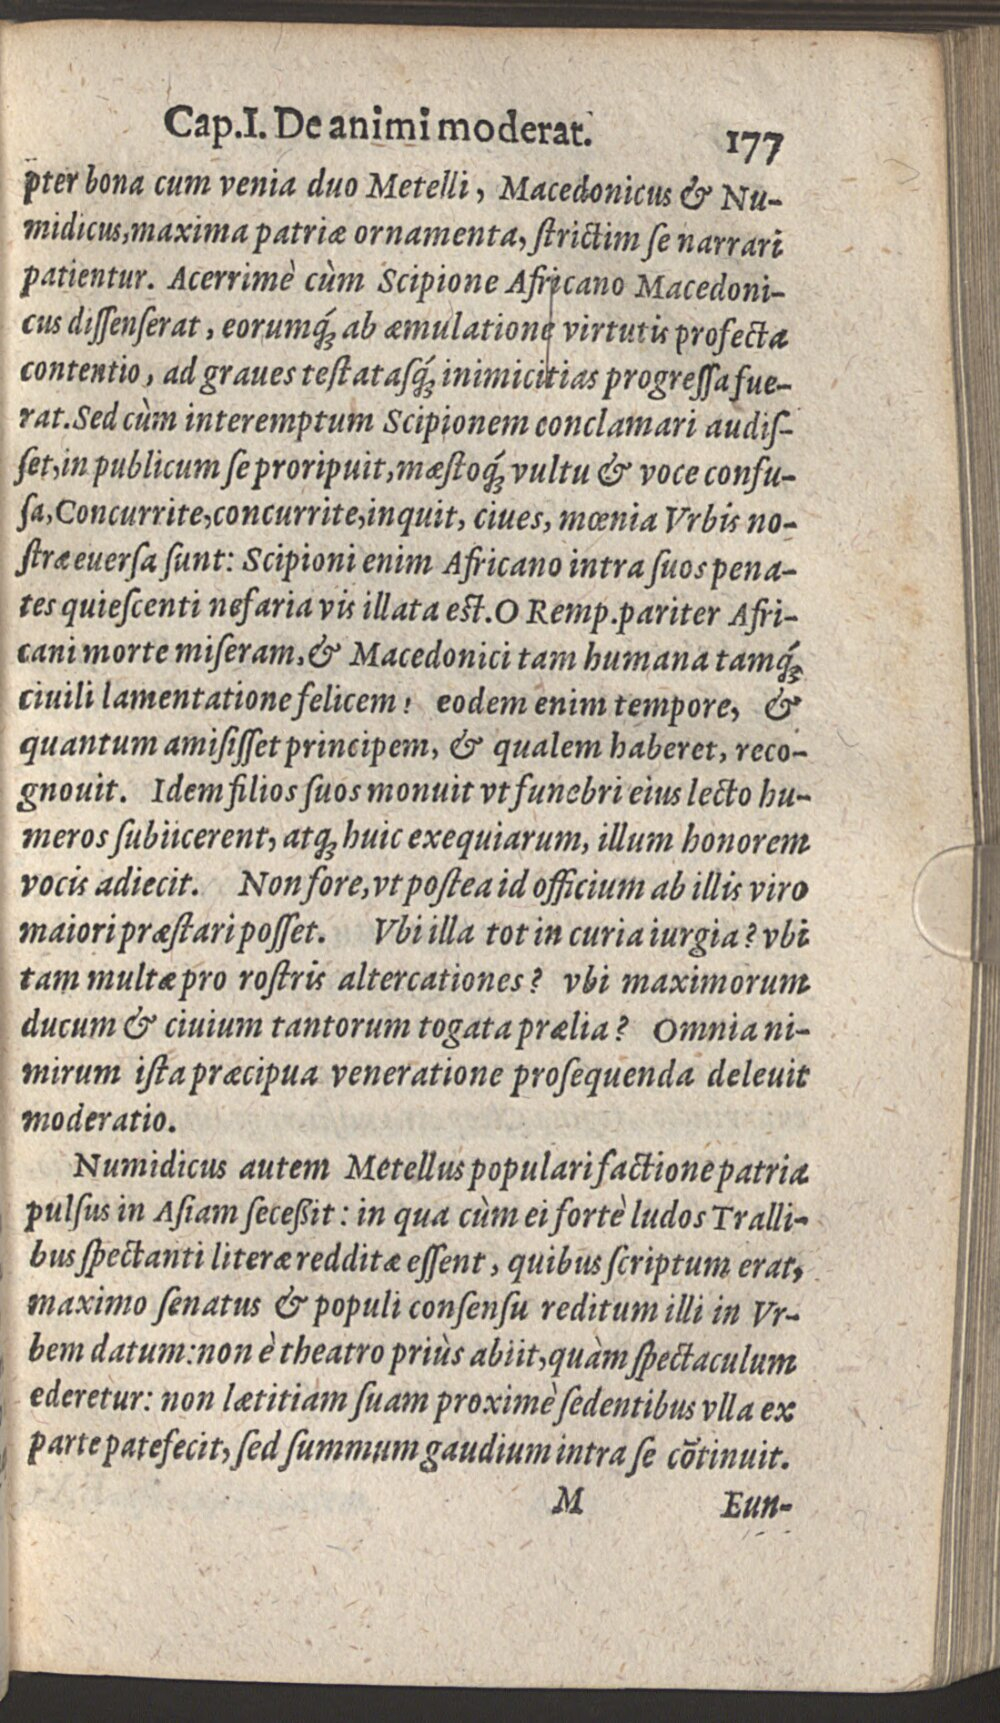 Cap.I. De animi moderat. 177
pter bona cum venia duo Metelli, Macedonicus & Nu-
midicus, maxima patriæ ornamenta, ſtrictim ſe narrari
patientur. Acerrimè cùm Scipione Africano Macedoni-
cus diſſenſerat, eorumq́ꝫ ab æmulatione virtutis profecta
contentio, ad graues teſtataſq́ꝫ inimicitias progreſſa fue-
rat. Sed cùm interemptum Scipionem conclamari audiſ-
ſet, in publicum ſe proripuit, mæſtoq́ꝫ vultu & voce confu-
ſa, Concurrite, concurrite, inquit, ciues, mœnia Vrbis no-
ſtræ euerſa ſunt: Scipioni enim Africano intra ſuos pena-
tes quieſcenti nefaria vis illata eſt. O Remp. pariter Afri-
cani morte miſeram, & Macedonici tam humana tamq́ꝫ
ciuili lamentatione felicem! eodem enim tempore, &
quantum amiſiſſet principem, & qualem haberet, reco-
gnouit. Idem filios ſuos monuit vt funebri eius lecto hu-
meros ſubiicerent, atqꝫ huic exequiarum, illum honorem
vocis adiecit. Non fore, vt poſtea id officium ab illis viro
maiori præſtari poſſet. Vbi illa tot in curia iurgia? vbi
tam multæ pro roſtris altercationes? vbi maximorum
ducum & ciuium tantorum togata prælia? Omnia ni-
mirum iſta præcipua veneratione proſequenda deleuit
moderatio.
Numidicus autem Metellus populari factione patria
pulſus in Aſiam ſeceßit: in qua cùm ei fortè ludos Tralli-
bus ſpectanti literæ redditæ eſſent, quibus ſcriptum erat,
maximo ſenatus & populi conſenſu reditum illi in Vr-
bem datum: non è theatro priùs abiit, quàm ſpectaculum
ederetur: non lætitiam ſuam proximè ſedentibus vlla ex
parte patefecit, ſed ſummum gaudium intra ſe cõtinuit.
M Eun-